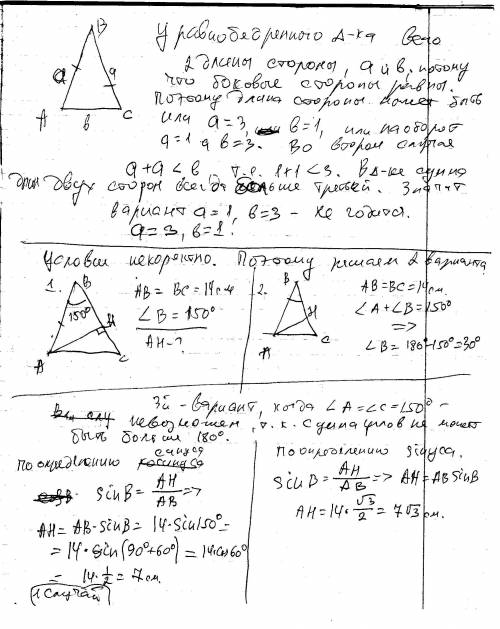 У равнобедренного Δ-ка всего
2 длины стороны, a и b, потому
что боковые стороны равны.
Поэтому длина стороны может быть
или a=3, b=1, или наоборот
a=1 а b=3. Во втором случае
a+a<b т.е. 1+1<3. В Δ-ке сумма
длин двух сторон всегда больше третьей. Значит
вариант a=1, b=3 – не годится.
a=3, b=1!
B
a
a
A
b
C
Условие некоректно. Поэтому решаем 2 варианта
1.
B
150°
H
A
C
AB = BC = 14 см
∠B = 150°
AH - ?
2.
B
H
A
C
AB = BC = 14 см.
∠A + ∠B = 150°
=>
∠B = 180°-150° = 30°
3й - вариант, когда ∠A = ∠C = 150° -
невозможен, т.к. сумма углов не может
быть больше 180°.
По определению синуса
sin B = AH/AB =>
AH = AB·sin B = 14·sin 150° =
= 14·sin(90°+60°) = 14·cos 60°
= 14·1/2 = 7 см.
(1 случай)
по определению sinуса.
sin B = AH/AB => AH = AB sin B
AH = 14·√3/2 = 7√3 см.